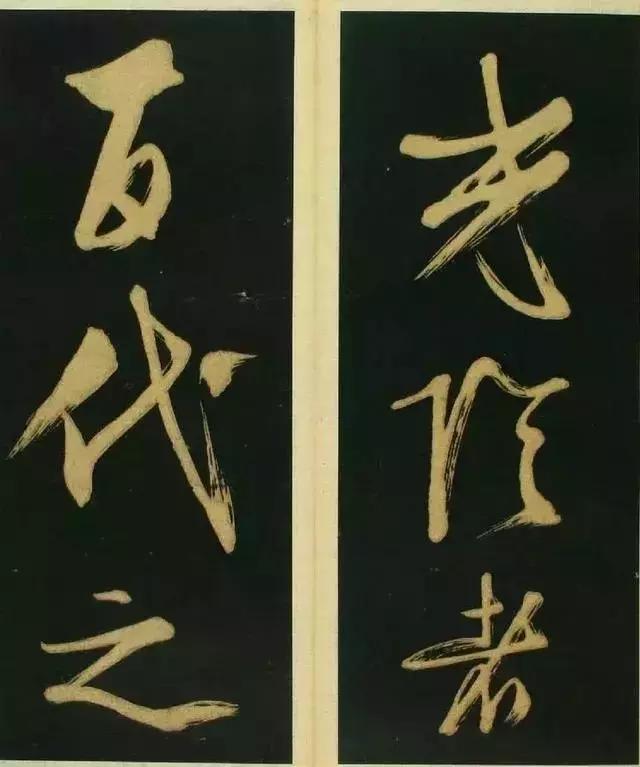 光阴者
百代之